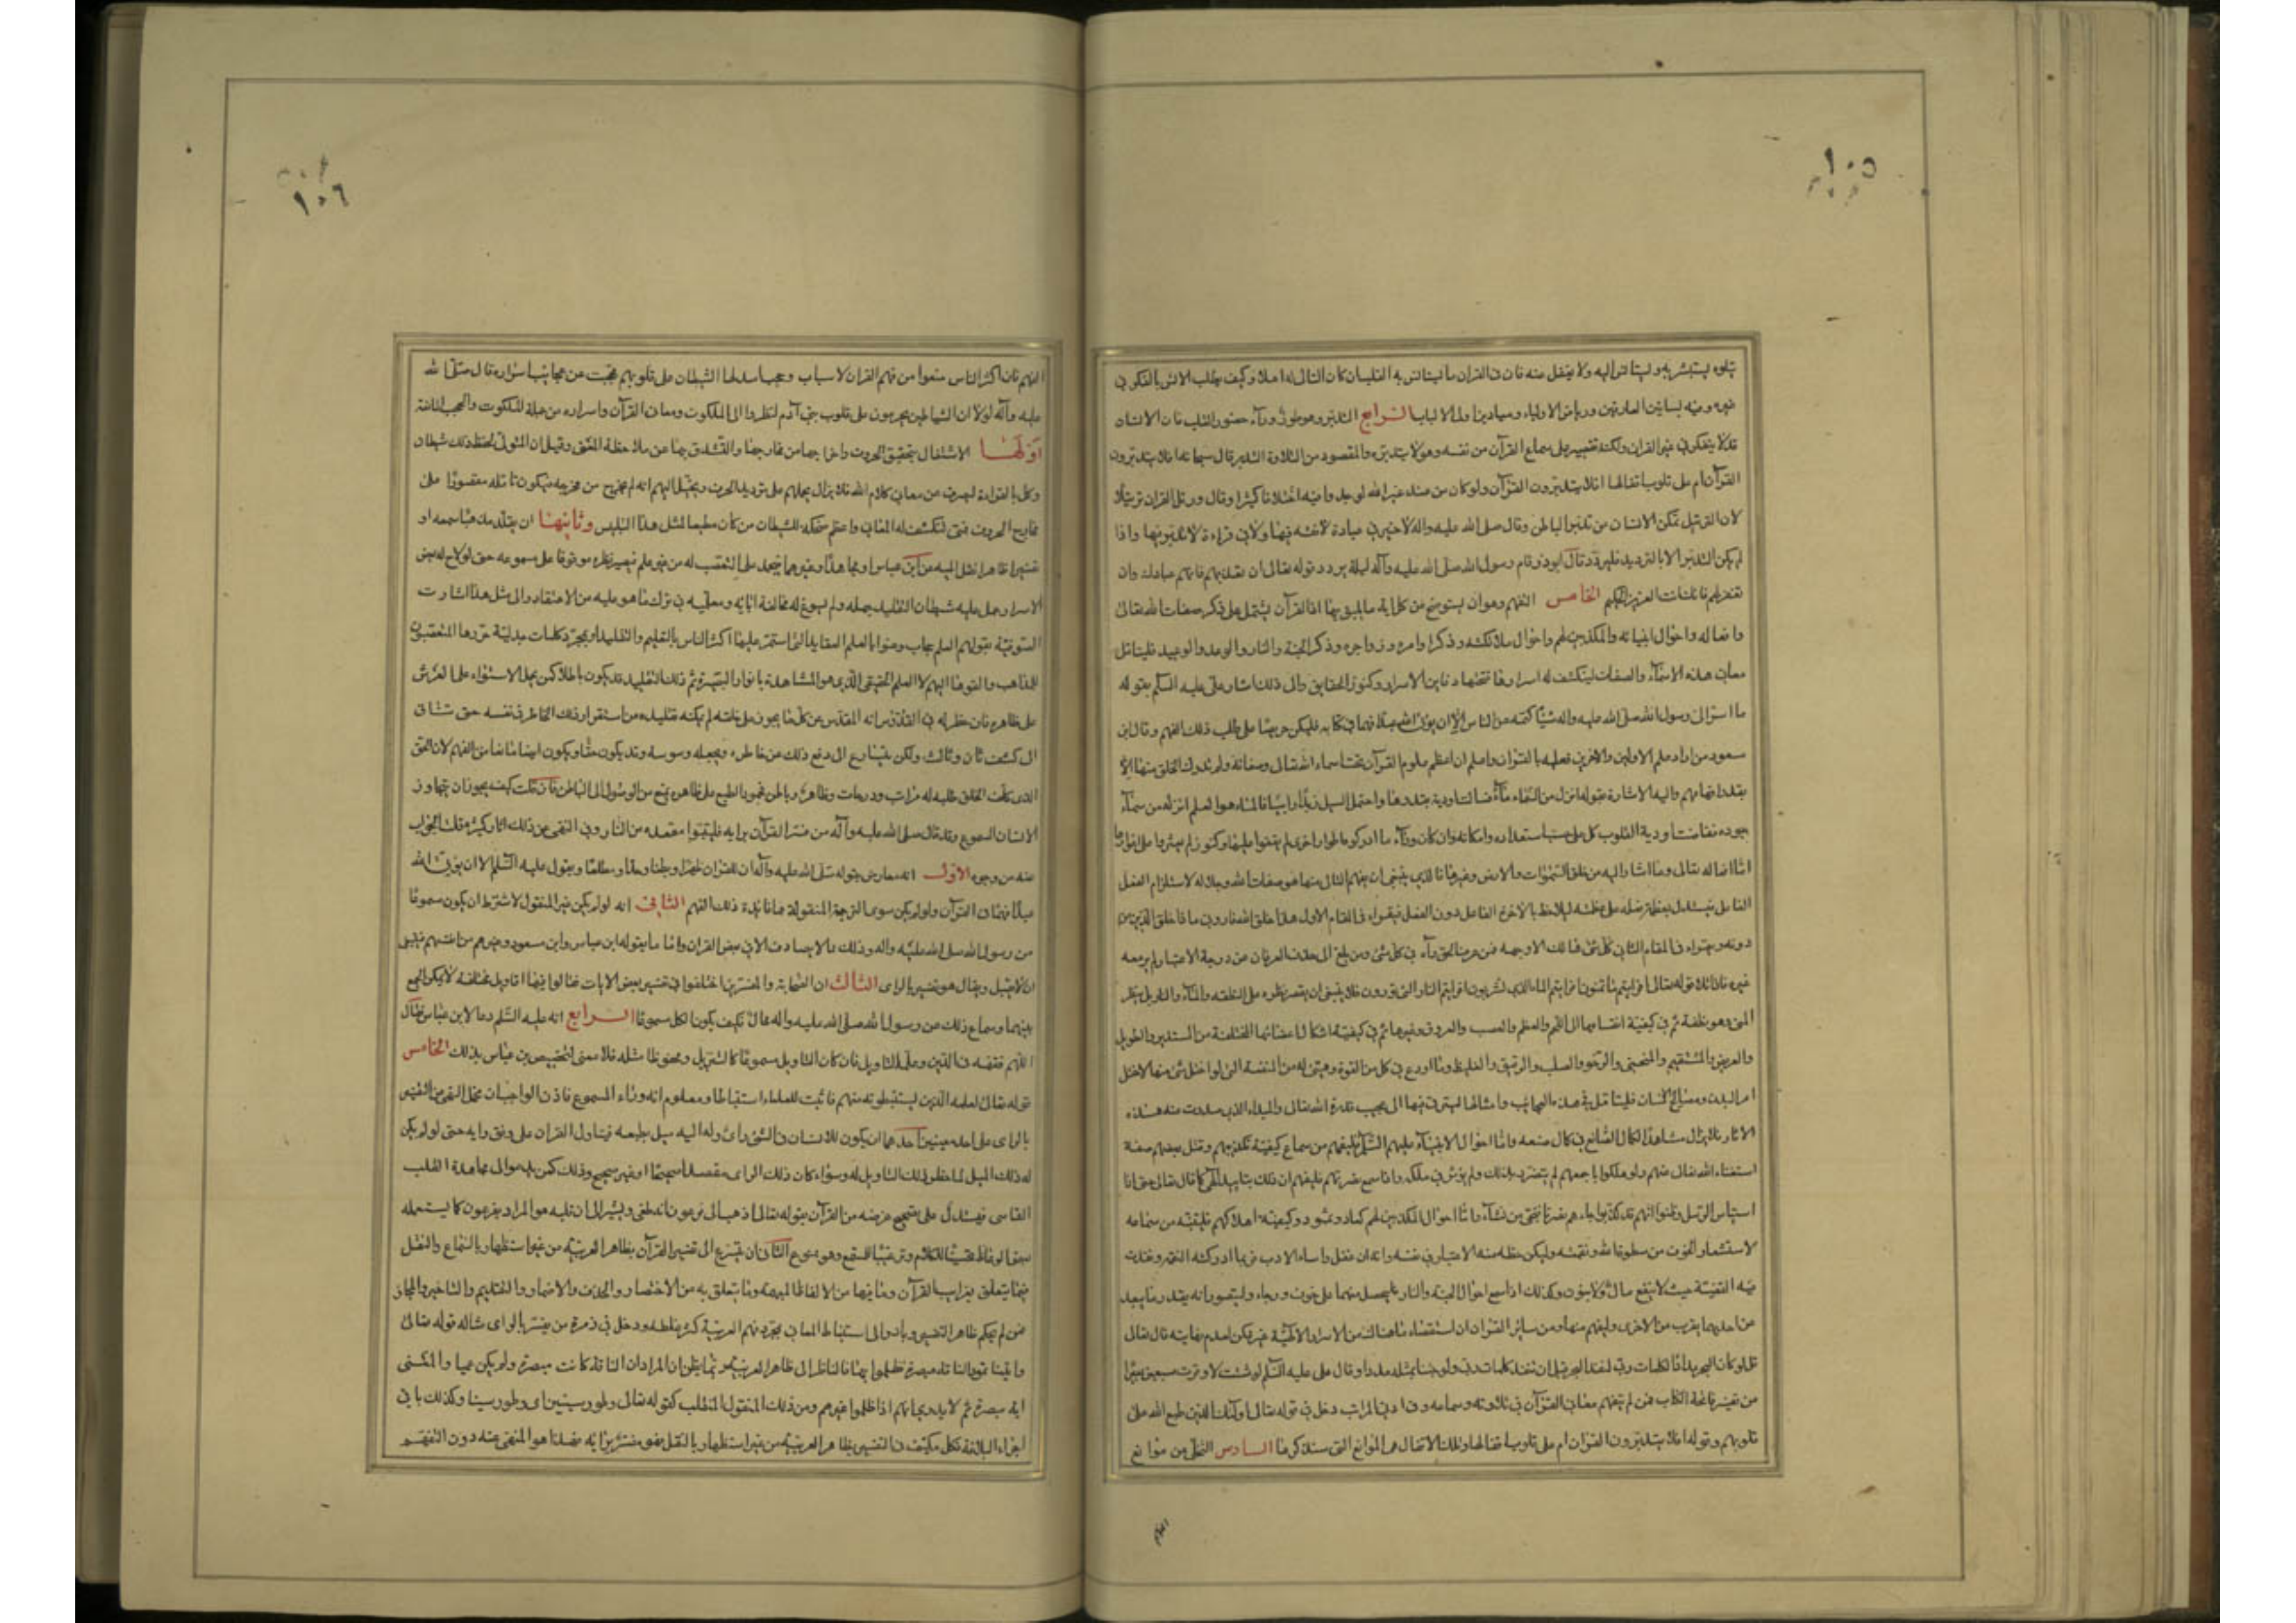 ١٠٥
يتلوه يستبشر به ويستانس اليه ولا يغفل عنه فان في القران ما يستانس به القلب ان كان التالي له اهلا وكيف يطلب الانس بالفكر في
غيره وفيه بساتين العارفين ورياض الاولياء وميادين اولى الالباب الرابع التدبر وهو طور وراء حضور القلب فان الانسان
قد لا يتفكر في غير القران ولكنه يقتصر على سماع القرآن من نفسه وهو لا يتدبره والمقصود من التلاوة التدبر قال سبحانه افلا يتدبرون
القرآن ام على قلوب اقفالها افلا يتدبرون القرآن ولو كان من عند غير الله لوجدوا فيه اختلافا كثيرا وقال ورتل القران ترتيلا
لان الترتيل يمكن الانسان من تدبر الباطن وقال صلى الله عليه واله لا خير في عبادة لا فقه فيها ولا في قراءة لا تدبر فيها واذا
لم يكن التدبر الا بالترديد فليردد قال ابوذر قام رسول الله صلى الله عليه وآله ليلة يردد قوله تعالى ان تعذبهم فانهم عبادك وان
تغفر لهم فانك انت العزيز الحكيم الخامس التفهم وهو ان يستوضح من كل اية ما يليق بها اذ القرآن يشتمل على ذكر صفات الله تعالى
وافعاله واحوال انبيائه والمكذبين لهم واحوال ملائكته وذكر اوامره وزواجره وذكر الجنة والنار والوعد والوعيد فليتامل
معاني هذه الاسماء والصفات لينكشف له اسرارها فتحتها دفاين الاسرار وكنوز الحقايق والى ذلك اشار علي عليه السلم بقوله
ما اسر الى رسول الله صلى الله عليه واله شيئا كتمه عن الناس الا ان يؤتى الله عبدا فهما في كتابه فليكن حريصا على طلب ذلك الفهم وقال ابن
مسعود من اراد علم الاولين والاخرين فعليه بالقران واعلم ان اعظم علوم القرآن تحت اسماء الله تعالى وصفاته ولم يدرك الخلق منها الا
بقدر افهامهم واليه الاشارة بقوله انزل من السماء ماء فسالت اودية بقدرها واحتمل السيل زبدا رابيا فالماء هو العلم انزله من سماء
جوده فقاضت اودية القلوب كل على حسب استعداده وامكانه وان كان وراء ما ادركوه اطوار اخرى لم يقفوا عليها وكنوز لم يعثروا على اغوارها
اما افعاله تعالى وما اشار اليه من خلق السموات والارض وغيرها فالذي ينبغي ان يفهم التالي منها هو صفات الله وجلاله لاستلزام الفعل
الفاعل فيستدل بعظم فعله على عظمته ليلاحظ بالاخرة الفاعل دون الفعل فيقراء في المقام الاول هذا خلق الله فاروني ما ذا خلق الذين من
دونه ويقراء في المقام الثاني كل شئ هالك الا وجهه فمن عرف الحق رآه في كل شئ ومن بلغ الى حد العرفان عن درجة الاعتبار لم ير معه
غيره فاذا تلا قوله تعالى افرايتم ما تمنون افرايتم الماء الذي تشربون افرايتم النار التي تورون فلا ينبغي ان يقصر نظره على النطفة والماء والنار بل ينظر
المني وهو نطفة ثم في كيفية انقسامها الى اللحم والعظم والعصب والعروق وغيرها ثم في كيفية اشكال اعضائها المختلفة من المستدير والطويل
والعريض والمستقيم والمنحني والرخو والصلب والرقيق والغليظ وما اودع في كل من القوة وهيئ له من المنفعة التي لو اختل شئ منها لاختل
امر البدن ومصالح الانسان فليتامل في هذه العجائب وامثالها ليترقى فيها الى عجيب قدرة الله تعالى والمبداء الذي صدرت منه هذه
الاثار فلا يزال مشاهدا لكمال الصانع في كمال صنعه واما احوال الانبياء عليهم السلم فليفهم من سماع كيفية تكذيبهم وقتل بعضهم صفة
استغناء الله تعالى عنهم ولو هلكوا باجمعهم لم يتضرر بذلك ولم يؤثر في ملكه واذا سمع نصرتهم فليفهم ان ذلك بتاييد الهى كما قال تعالى حتى اذا
استياس الرسل وظنوا انهم قد كذبوا جاءهم نصرنا فنجى من نشاء واما احوال المكذبين لهم كعاد وثمود وكيفية اهلاكهم فليتنبه من سماعه
لاستشعار الخوف من سطوة الله ونقمته وليكن حظه منه الاعتبار في نفسه وانه ان غفل واساء الادب فربما ادركته النقمة ونفذت
فيه القضية حيث لا ينفع مال ولا بنون وكذلك اذا سمع احوال الجنة والنار فليحصل منهما على خوف ورجاء وليتصور انه بقدر ما يبعد
من احدهما يقرب من الاخرى وليفهم منها ومن سائر القران ان استقصاء ما هناك من الاسرار الالهية غير ممكن لعدم نهايته قال تعالى
قل لو كان البحر مدادا لكلمات ربي لنفد البحر قبل ان تنفد كلمات ربي ولو جئنا بمثله مددا وقال على عليه السلم لو شئت لاوقرت سبعين بعيرا
من تفسير فاتحة الكتاب فمن لم يتفهم معاني القرآن في تلاوته وسماعه ولو في ادنى المراتب دخل في قوله تعالى اولئك الذين طبع الله على
قلوبهم وقوله افلا يتدبرون القران ام على قلوب اقفالها وتلك الاقفال هي الموانع التي سنذكرها السادس التخلى من موانع
الفهم
١٠٦
الفهم فان اكثر الناس منعوا من فهم القران لاسباب وحجب اسدلها الشيطان على قلوبهم فحجبت عن عجائب اسراره قال صلى الله
عليه وآله لولا ان الشياطين يحومون على قلوب بني آدم لنظروا الى الملكوت ومعاني القرآن واسراره من جملة الملكوت والحجب المانعة
اولها الاشتغال بتحقيق الحروف واخراجها من مخارجها والتشدق بها عن ملاحظة المعنى وقيل ان المتولى لحفظ ذلك شيطان
وكل بالقراءة ليصرف عن معاني كلام الله فلا يزال يحملهم على ترديد الحرف ويخيل اليهم انه لم يخرج من مخرجه فيكون تامله مقصورا على
مخارج الحروف فمتى تنكشف له المعاني واعظم ضحكة للشيطان من كان مطيعا لمثل هذا التلبيس وثانيها ان يقلد مذهبا سمعه او
تفسيرا ظاهرا نقل اليه من ابن عباس او مجاهد او غيرهما فيحمد على التعصب له من غير علم فيصير نظره موقوفا على مسموعه حتى لو لاح له بعض
الاسرار حمل عليه شيطان التقليد حمله ولم يسوغ له مخالفة ابائه ومعلميه في ترك ما هو عليه من الاعتقاد والى مثل هذا اشارت
الصوفية بقولهم العلم حجاب وعنوا بالعلم العقايد التي استمر عليها اكثر الناس بالتعليم والتقليد او بمجرد كلمات جدلية حررها المتعصبون
للمذاهب والقوها اليهم لا العلم الحقيقى الذي هو المشاهدة بانوار البصيرة ثم ذلك التقليد قد يكون باطلا كمن يحمل الاستواء على العرش
على ظاهره فان خطر له في القدوس انه المقدس عن كل ما يجوز على خلقه لم يمكنه تقليده من استقرار ذلك الخاطر في نفسه حتى تنساق
الى كشف ثان وثالث ولكن يتسارع الى دفع ذلك عن خاطره ويجعله وسوسة وقد يكون حقا ويكون ايضا مانعا من الفهم لان الحق
الذي كلف الخلق طلبه له مراتب ودرجات وظاهر وباطن فجمود الطبع على ظاهره يمنع من الوصول الى الباطن فان قلت كيف يجوز ان يتجاوز
الانسان المسموع وقد قال صلى الله عليه وآله من فسر القرآن برايه فليتبوأ مقعده من النار وفي النهى عن ذلك اثار كثيرة قلت الجواب
عنه من وجوه الاول انه معارض بقوله صلى الله عليه وآله ان للقران ظهرا وبطنا وحدا ومطلعا وبقول علي عليه السلم الا ان يؤتى الله
عبدا فهما في القرآن ولو لم يكن سوى الترجمة المنقولة فما فائدة ذلك الفهم الثانى انه لو لم يكن غير المنقول لاشترط ان يكون مسموعا
من رسول الله صلى الله عليه واله وذلك مما لا يصادف الا في بعض القران واما ما يقوله ابن عباس وابن مسعود وغيرهم من انفسهم فينبغى
ان لا يقبل ويقال هو تفسير بالراى الثالث ان الصحابة والمفسرين اختلفوا في تفسير بعض الايات فقالوا فيها اقاويل مختلفة لا يمكن الجمع
بينهما وسماع ذلك من رسول الله صلى الله عليه واله محال فكيف يكون الكل مسموعا الرابع انه عليه السلم دعا لابن عباس فقال
اللهم فقهه في الدين وعلمه التاويل فان كان التاويل مسموعا كالتنزيل ومحفوظا مثله فلا معنى لتخصيص بن عباس بذلك الخامس
قوله تعالى لعلمه الذين يستنبطونه منهم فاثبت للعلماء استنباطا ومعلوم انه وراء المسموع فاذن الواجب ان يحمل النهى عن التفسير
بالراى على احد معنيين احدهما ان يكون للانسان في الشئ رأى وله اليه ميل بطبعه فيتاول القران على وفق رايه حتى لو لم يكن
له ذلك الميل لما خطر ذلك التاويل له وسواء كان ذلك الراى مقصدا صحيحا او غير صحيح وذلك كمن يدعو الى مجاهدة القلب
القاسى فيستدل على تصحيح غرضه من القرآن بقوله تعالى اذهب الى فرعون انه طغى ويشير الى ان قلبه هو المراد بفرعون كما يستعمله
بعض الوعاظ تحسينا للكلام وترغيبا للمستمع وهو ممنوع الثانى ان يتسرع الى تفسير القرآن بظاهر العربية من غير استظهار بالسماع والنقل
فيما يتعلق بغرايب القرآن وما فيها من الالفاظ المبهمة وما يتعلق به من الاختصار والحذف والاضمار والتقديم والتاخير والمجاز
فمن لم يحكم ظاهر التفسير وبادر الى استنباط المعانى بمجرد فهم العربية كثر غلطه ودخل في زمرة من يفسر بالراى مثاله قوله تعالى
واتينا ثمود الناقة مبصرة فظلموا بها فالناظر الى ظاهر العربية ربما يظن ان المراد ان الناقة كانت مبصرة ولم يكن عميا والمعنى
اية مبصرة ثم لا يدرى انهم اذا ظلموا غيرهم ومن ذلك المنقول المنقلب كقوله تعالى وطور سينين اى وطور سينا وكذلك باقى
اجزاء البلاغة فكل مكتف في التفسير بظاهر العربية من غير استظهار بالنقل فهو مفسر برايه فهذا هو المنهى عنه دون التفهم